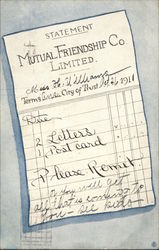 STATEMENT
MUTUAL FRIENDSHIP CO.
LIMITED.
Miss H. Williams
Terms City of Trust 1911
Due
2 Letters
1 Post card
Please Remit
or you will get
all that is coming to
you